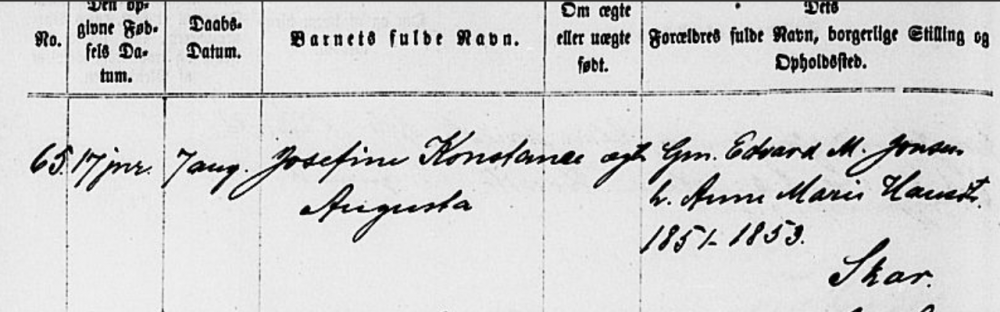 No.
Den op-
givne Fød-
sels Da-
tum.
Daabs-
Datum.
Barnets fulde Navn.
Om ægte
eller uægte
født.
Dets
Forældres fulde Navn, borgerlige Stilling og
Opholdssted.
65. 17 jnr. 7 aug. Josefine Konstanse ægte Gm. Edvard M. Jonsen
Augusta
h. Anne Marie Hansdt.
1851-1853.
Skar.